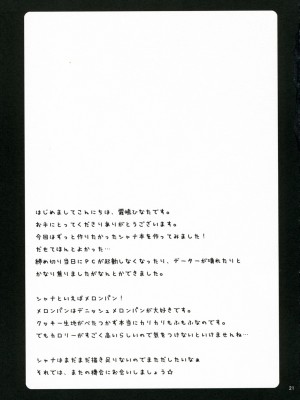 はじめましてこんにちは、雲鳴ひなたです。
お手にとってくださりありがとうございます。
今回はずっと作りたかったシャナ本を作ってみました!
だせてほんとよかった…
締め切り当日にPCが起動しなくなったり、データーが壊れたりと
かなり焦りましたがなんとかできました。
シャナといえばメロンパン!
メロンパンはデニッシュメロンパンが大好きです。
クッキー生地がべたつかず本当にカリカリもふもふなのです。
でもカロリーがすごく高いらしいので気をつけないといけませんね…
シャナはまだまだ描き足りないのでまただしたいなぁ
それでは、またの機会にお会いしましょう☆
21